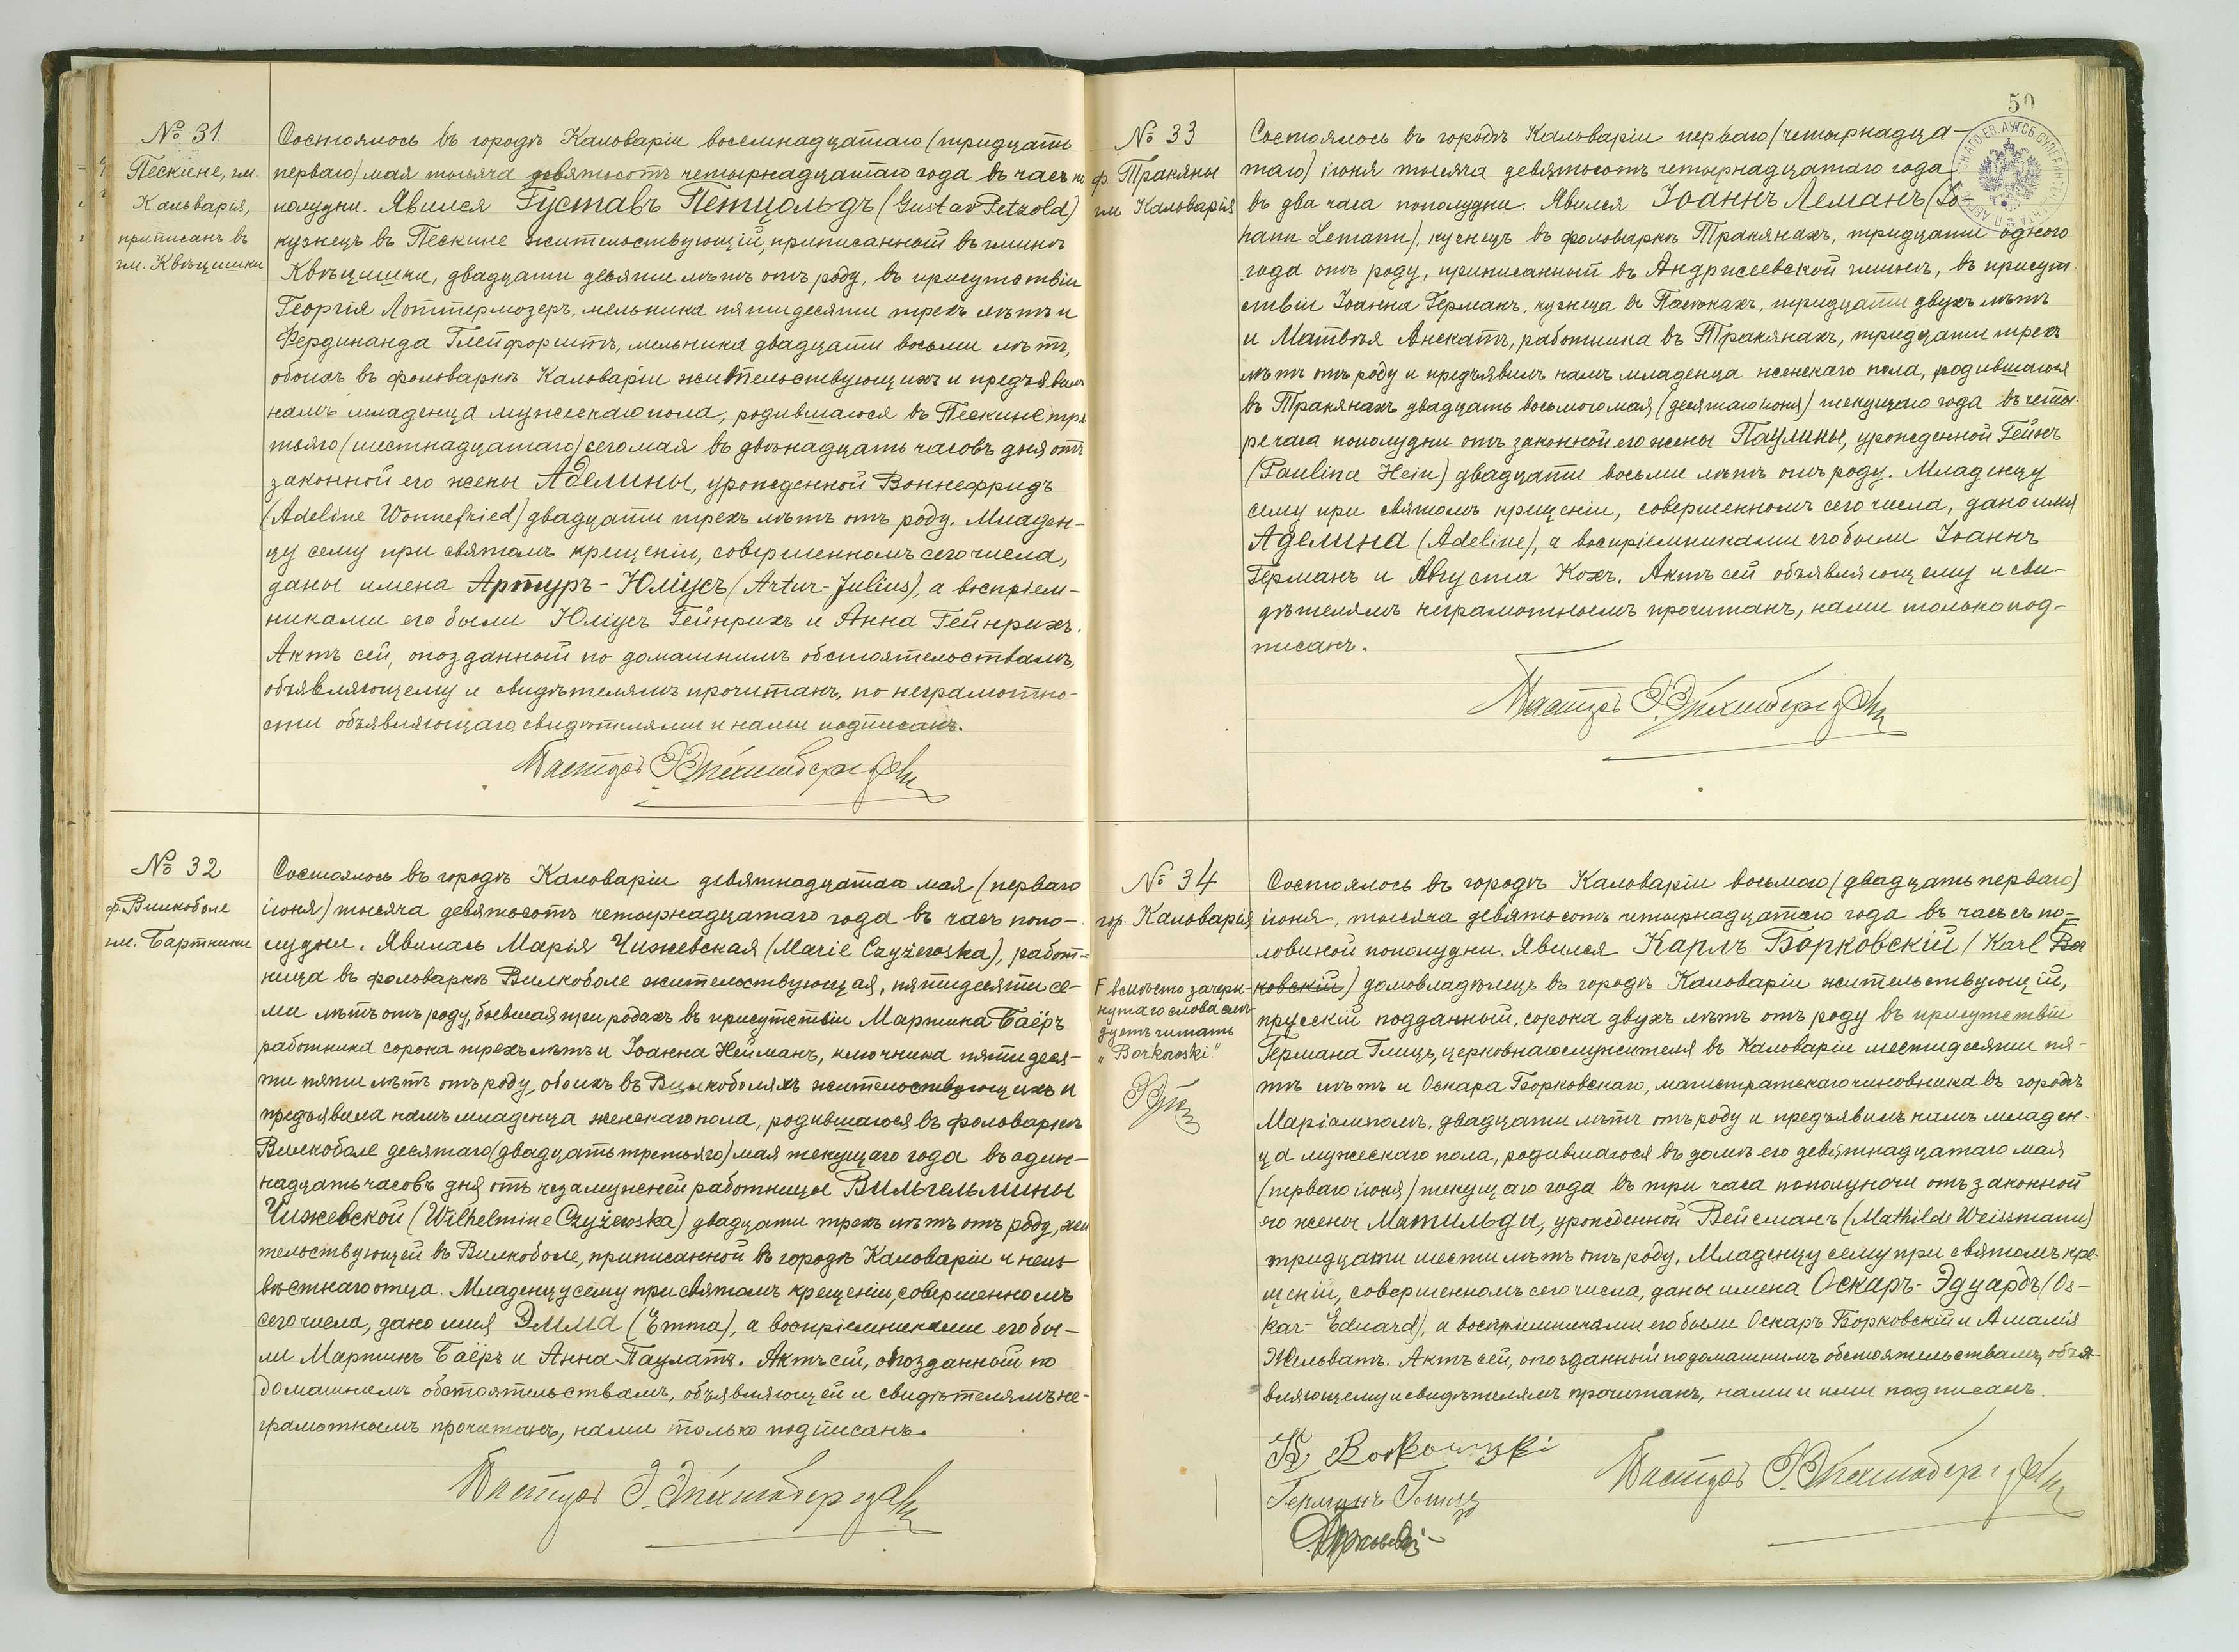 № 31.
Пескине, гм.
Кальварія,
приписанъ въ
гм. Квѣцишки
Состоялось въ городѣ Кальваріи восемнадцатаго (тридцать
перваго) мая тысяча девятьсотъ четырнадцатаго года въ часъ по
полудни. Явился Густавъ Петцольдъ (Gustav Petzold)
кузнецъ въ Пескине жительствующій, приписанный въ гминѣ
Квѣцишки, двадцати девяти лѣтъ отъ роду, въ присутствіи
Георгія Лоттермозеръ, мельника пятидесяти трехъ лѣтъ и
Фердинанда Глейфоршть, мельника двадцати восьми лѣтъ,
обоихъ въ фольваркѣ Кальваріи жительствующихъ и предъявилъ
намъ младенца мужескаго пола, родившагося въ Пескине тре
тьяго (шестнадцатаго) сего мая въ двѣнадцать часовъ дня отъ
законной его жены Аделины, урожденной Воннефридъ
(Adeline Wonnefried) двадцати трехъ лѣтъ отъ роду. Младен-
цу сему при святомъ крещеніи, совершенномъ сего числа,
даны имена Артуръ-Юліусъ (Artur-Julius), а воспріем-
никами его были Юліусъ Гейнрихъ и Анна Гейнрихъ.
Актъ сей, опозданный по домашнимъ обстоятельствамъ,
объявляющему и свидѣтелямъ прочитанъ, по неграмотно-
сти объявляющаго, свидѣтелями и нами подписанъ.
Пасторъ
№ 32
ф. Вилкоболе
гм. Бартники
Состоялось въ городѣ Кальваріи девятнадцатаго мая (перваго
іюня) тысяча девятьсотъ четырнадцатаго года въ часъ попо-
лудни. Явилась Марія Чижевская (Marie Czyżewska), работ-
ница въ фольваркѣ Вилкоболе жительствующая, пятидесяти се-
ми лѣтъ отъ роду, бывшая при родахъ въ присутствіи Мартина Баёръ
работника сорока трехъ лѣтъ и Іоанна Нейманъ, ключника пятидеся-
ти пяти лѣтъ отъ роду, обоихъ въ Вилкоболяхъ жительствующихъ и
предъявила намъ младенца женскаго пола, родившагося въ фольваркѣ
Вилкоболе десятаго (двадцать третьяго) мая текущаго года въ один-
надцать часовъ дня отъ незамужней работницы Вильгельмины
Чижевской (Wilhelmine Czyżewska) двадцати трехъ лѣтъ отъ роду, жи
тельствующей въ Вилкоболе, приписанной въ городѣ Кальваріи и неиз-
вѣстнаго отца. Младенцу сему при святомъ крещеніи, совершенномъ
сего числа, дано имя Эмма (Emma), а воспріемниками его бы-
ли Мартинъ Баёръ и Анна Паулатъ. Актъ сей, опозданный по
домашнимъ обстоятельствамъ, объявляющей и свидѣтелямъ не-
грамотнымъ прочитанъ, нами только подписанъ.
Пасторъ
50
№ 33
ф. Тракяны
гм. Кальварія
Состоялось въ городѣ Кальваріи перваго (четырнадца-
таго) іюня тысяча девятьсотъ четырнадцатаго года
въ два часа пополудни. Явился Іоаннъ Леманъ (Jo-
hann Lemann), кузнецъ въ фольваркѣ Тракянахъ, тридцати одного
года отъ роду, приписанный въ Андржеевской гминѣ, въ присут-
ствіи Іоанна Германъ, кузнеца въ Паюнахъ, тридцати двухъ лѣтъ
и Матвѣя Анскатъ, работника въ Тракянахъ, тридцати трехъ
лѣтъ отъ роду и предъявилъ намъ младенца женскаго пола, родившагося
въ Тракянахъ двадцать восьмого мая (десятаго іюня) текущаго года въ четы-
ре часа пополудни отъ законной его жены Паулины, урожденной Гейнъ
(Paulina Hein) двадцати восьми лѣтъ отъ роду. Младенцу
сему при святомъ крещеніи, совершенномъ сего числа, дано имя
Аделина (Adeline), а воспріемниками его были Іоаннъ
Германъ и Августа Кохъ. Актъ сей объявляющему и сви-
дѣтелямъ неграмотнымъ прочитанъ, нами только под-
писанъ.
Пасторъ
№ 34
гор. Кальварія
F вмѣсто зачерк-
нутаго слова слѣ-
дуетъ читать
"Borkowski"
Состоялось въ городѣ Кальваріи восьмого (двадцать перваго)
іюня, тысяча девятьсотъ четырнадцатаго года въ часъ съ по-
ловиной пополудни. Явился Карлъ Борковскій (Karl Бор
ковскій) домовладѣлецъ въ городѣ Кальваріи жительствующій,
прусскій подданный, сорока двухъ лѣтъ отъ роду въ присутствіи
Германа Глицъ, церковнаго служителя въ Кальваріи шестидесяти пя-
ти лѣтъ и Оскара Борковскаго, магистратскаго чиновника въ городѣ
Маріамполѣ, двадцати лѣтъ отъ роду и предъявилъ намъ младен-
ца мужескаго пола, родившагося въ домѣ его девятнадцатаго мая
(перваго іюня) текущаго года въ три часа пополуночи отъ законной
его жены Матильды, урожденной Вейсманъ (Mathilde Weissmann)
тридцати шести лѣтъ отъ роду. Младенцу сему при святомъ кре-
щеніи, совершенномъ сего числа, даны имена Оскаръ-Эдуардъ (Os-
kar-Eduard), а воспріемниками его были Оскаръ Борковскій и Амалія
Жельватъ. Актъ сей, опозданный по домашнимъ обстоятельствамъ, объя-
вляющему и свидѣтелямъ прочитанъ, нами и ими подписанъ.
K. Borkowski
Германъ Глицъ
Пасторъ